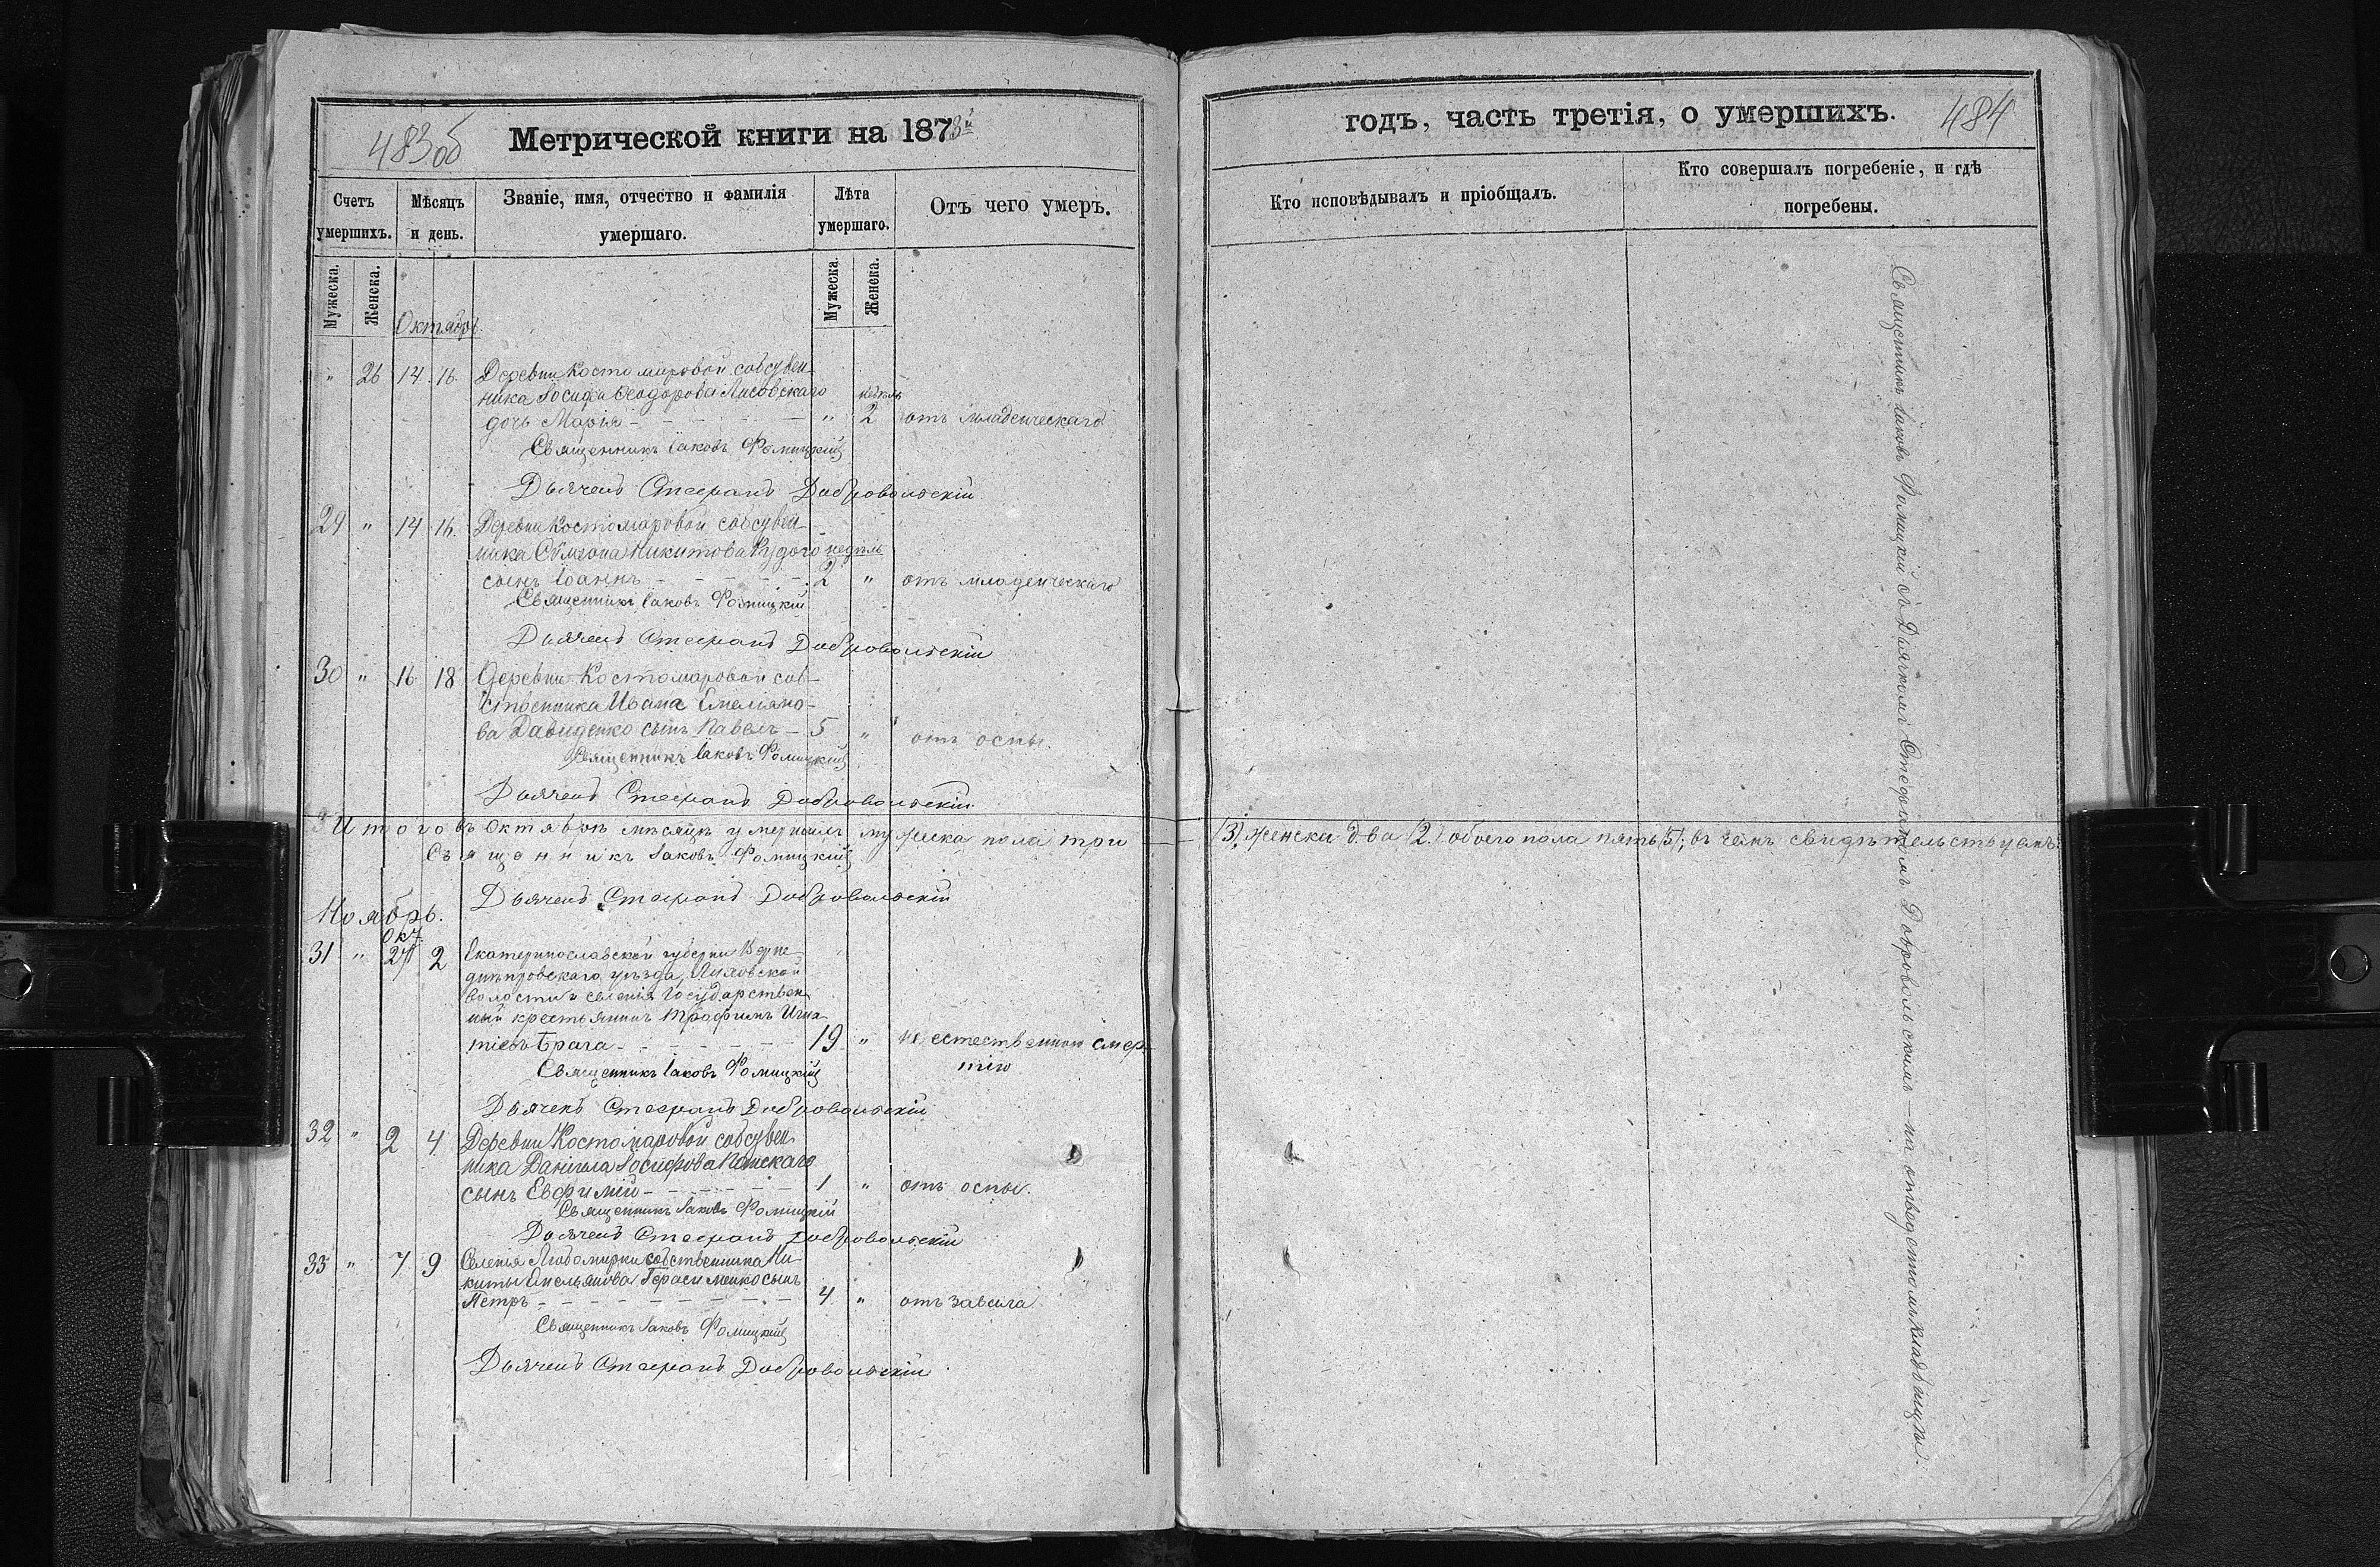 483об
Метрической книги на 1873й
Счетъ умершихъ.
Мѣсяцъ и день.
Званіе, имя, отчество и фамилія умершаго.
Лѣта умершаго.
Отъ чего умеръ.
Мужеска. Женска.
Мужеска. Женска.
Октябрь
" 26 14 16 Деревни Костомаровой собствен-
ника Іосифа Ѳеодорова Лисовскаго недѣль
дочь Марія - " 2 отъ младенческаго
Священникъ Іаковъ Фомицкій
Дьячекъ Стефанъ Добровольскій
29 " 14 16. Деревни Костомаровой собствен-
ника Сѵмеона Никитова недѣль
сынъ Іоаннъ - 2 " отъ младенческаго
Священникъ Іаковъ Фомицкій
Дьячекъ Стефанъ Добровольскій
30 " 16 18 Деревни Костомаровой соб-
ственника Ивана Емеліяно-
ва Давиденко сынъ Павелъ - 5 " отъ оспы.
Священникъ Іаковъ Фомицкій
Дьячекъ Стефанъ Добровольскій
Итого въ Октябрѣ мѣсяцѣ умершихъ мужеска пола три
Священникъ Іаковъ Фомицкій
Дьячекъ Стефанъ Добровольскій
Ноябрь.
Окт.
31 " 27 2 Екатеринославской губерніи Верхне-
днѣпровскаго уѣзда, Лиховской
волости и селенія Государствен-
ный крестьянинъ Трофимъ Игна-
тіевъ Брага - 19 " не естественною смер-
тію
Священникъ Іаковъ Фомицкій
Дьячекъ Стефанъ Добровольскій
32 " 2 4 Деревни Костомаровой собствен-
ника Даніила Іосифова
сынъ Евфимій - 1 " отъ оспы.
Священникъ Іаковъ Фомицкій
Дьячекъ Стефанъ Добровольскій
33 " 7 9 Селенія Любомирки собственника Ни-
киты Емельянова Герасименко сынъ
Петръ - 4 " отъ
Священникъ Іаковъ Фомицкій
Дьячекъ Стефанъ Добровольскій
годъ, часть третія, о умершихъ.
484
Кто исповѣдывалъ и пріобщалъ.
Кто совершалъ погребеніе, и гдѣ
погребены.
(3), женска два (2.) обоего пола пять (5), въ чемъ свидѣтельствуемъ:
Священникъ Іаковъ Фомицкій съ Дьячкомъ Стефаномъ Добровольскимъ - на отведенномъ кладбищѣ.